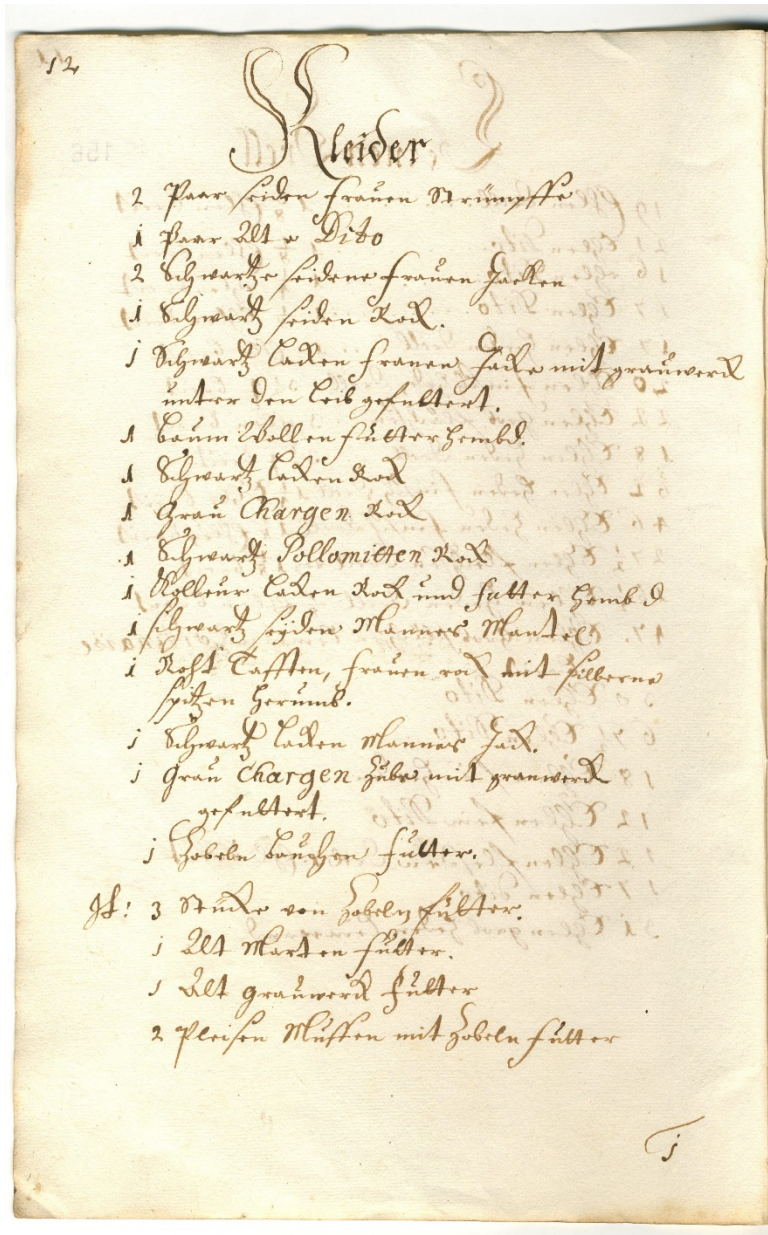 12
Kleider
2 Paar seiden frauen Strümpffe
1 Paar Alte Dito
2 Schwartze seidene frauen Jacken
1 Schwartz seiden Rock.
1 Schwartz lacken frauen Jacke mit grauwerck
unter den leib gefuttert.
1 baum Wollen futter hembd.
1 Schwartz lacken Rock
1 Grau Chargen Rock
1 Schwartz Pollomitten Rock
1 Kolleur lacken Rock und futter hembd
1 schwartz seyden Mannes Mantel
1 Roht Tafften, frauen rock mit silberne
spitzen herumb.
1 Schwartz lacken Mannes Jack.
1 Grau Chargen Zube mit grauwerck
gefuttert.
1 Zobeln bauchen futter.
It: 3 Stucke von Zobeln futter.
1 Alt Marten futter.
1 Alt grauwerck futter
2 Pleisen Muffen mit Zobeln futter
1